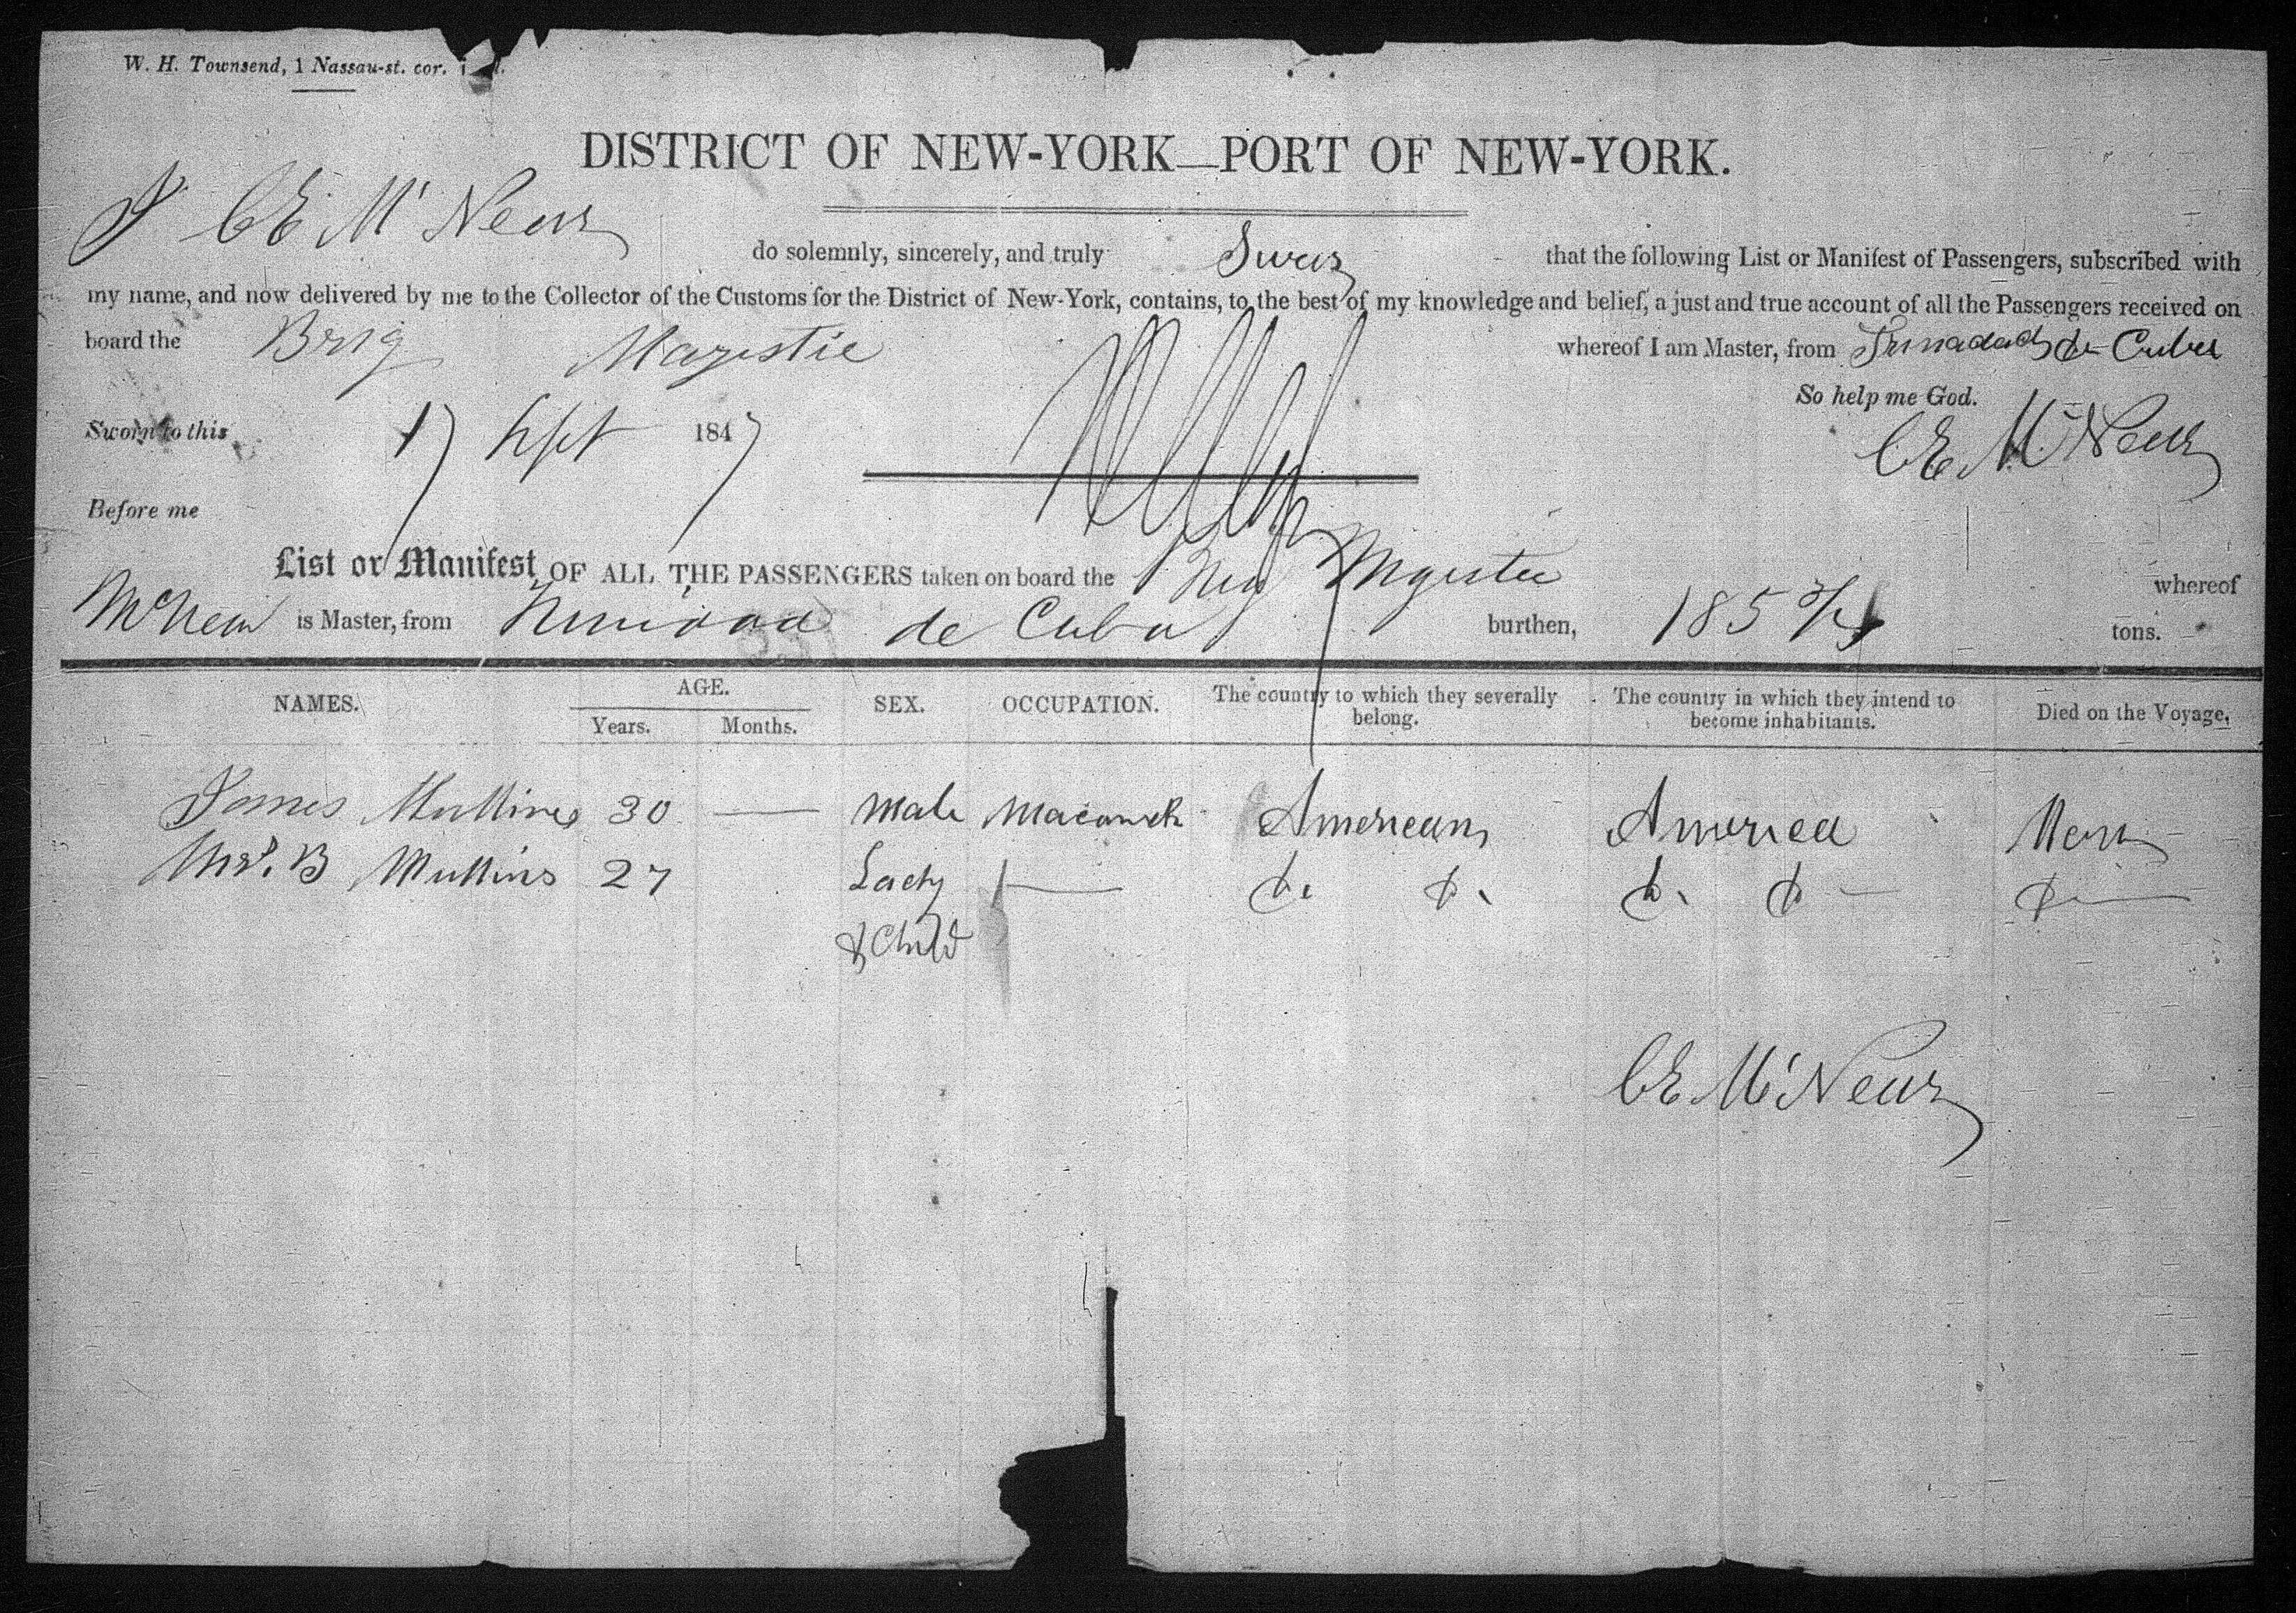 W. H. Townsend, 1 Nassau-st. cor.
DISTRICT OF NEW-YORK—PORT OF NEW-YORK.
I C E Mc Near do solemnly, sincerely, and truly Swear that the following List or Manifest of Passengers, subscribed with
my name, and now delivered by me to the Collector of the Customs for the District of New-York, contains, to the best of my knowledge and belief, a just and true account of all the Passengers received on
board the Brig Majestic whereof I am Master, from Trinadad de Cuba
So help me God.
Sworn to this 17 Sept 1847
C E McNear
Before me
List or Manifest OF ALL THE PASSENGERS taken on board the Brig Majestic whereof
McNear is Master, from Trinidad de Cuba burthen, 185 tons.
NAMES. AGE. SEX. OCCUPATION. The country to which they severally belong. The country in which they intend to become inhabitants. Died on the Voyage.
Years. Months.
James Mullins 30 — Male Macanick American America None
Mrs. B Mullins 27 Lady — Do. Do. Do. Do — Do —
& Child
C E McNear